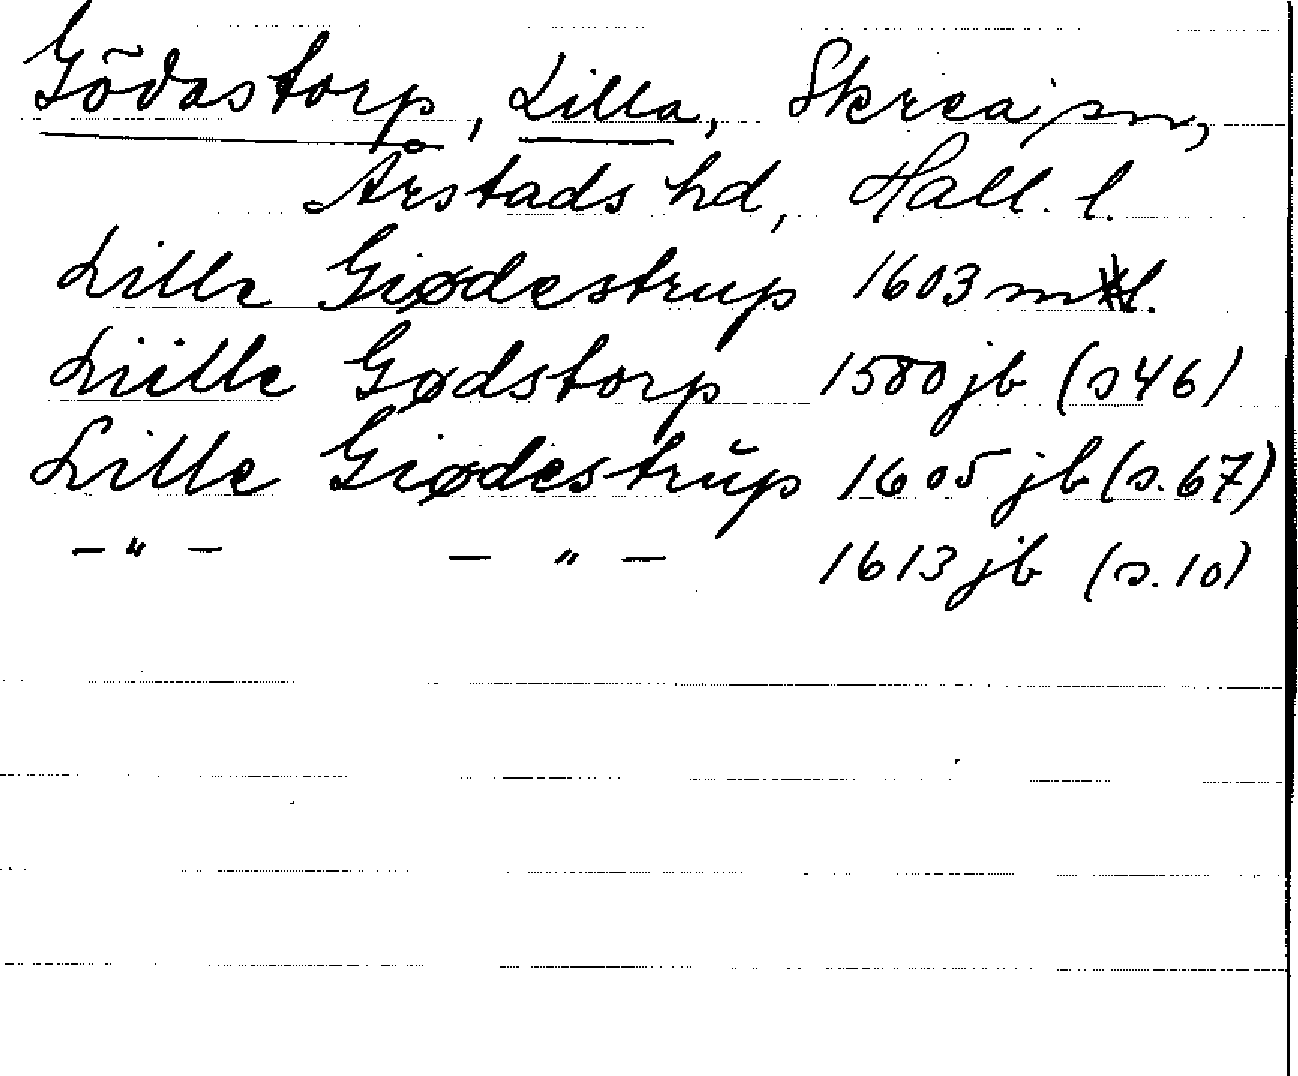 Gödastorp, Lilla, Skrea sn,
Årstads hd, Hall. l.
Lille Giødestrup 1603 ml.
Liille Gødstorp 1580 jb (s 46)
Lille Giødestrŭp 1605 jb (s. 67)
– " – – " – 1613 jb (s. 10)